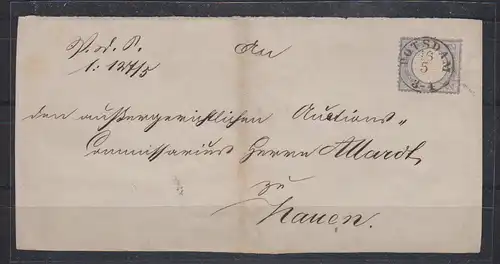 P. d. P.
1: 127/5
An
POTSDAM
26
5
3-4
den außergerichtlichen Auctions-
Commissarius Herrn Allardt
zu
Nauen.